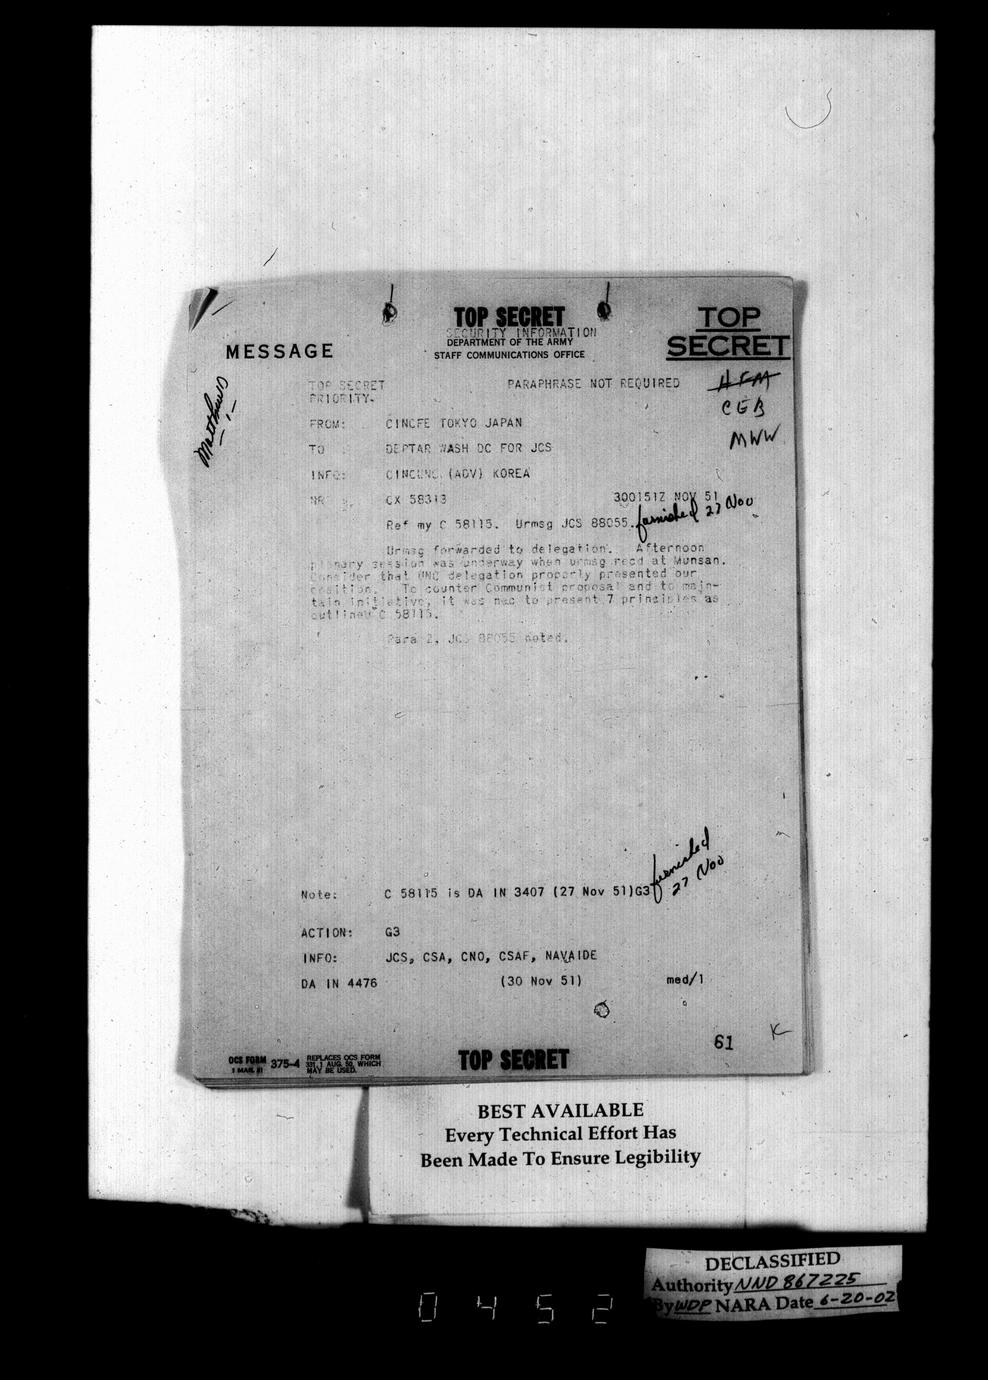 TOP SECRET
SECURITY INFORMATION
DEPARTMENT OF THE ARMY
STAFF COMMUNICATIONS OFFICE
TOP
SECRET
MESSAGE
Matthews
HFM
CEB
MWW
TOP SECRET PARAPHRASE NOT REQUIRED
PRIORITY
FROM: CINCFE TOKYO JAPAN
TO : DEPTAR WASH DC FOR JCS
INFO: CINCUNC (ADV) KOREA
NR : CX 58313 300151Z NOV 51
Ref my C 58115. Urmsg JCS 88055. furnished 27 Nov
Urmsg forwarded to delegation. Afternoon
plenary session was underway when urmsg recd at Munsan.
Consider that UNC delegation properly presented our
position. To counter Communist proposal and to main-
tain initiative, it was nec to present 7 principles as
outlined C 58115.
Para 2, JCS 88055 noted.
furnished
27 Nov
Note: C 58115 is DA IN 3407 (27 Nov 51)G3
ACTION: G3
INFO: JCS, CSA, CNO, CSAF, NAVAIDE
DA IN 4476 (30 Nov 51) med/1
61
K
OCS FORM 375-4 REPLACES OCS FORM
1 MAR. 51 331, 1 AUG. 50, WHICH
MAY BE USED.
TOP SECRET
BEST AVAILABLE
Every Technical Effort Has
Been Made To Ensure Legibility
DECLASSIFIED
Authority NND 867225
By WDP NARA Date 6-20-02
0452